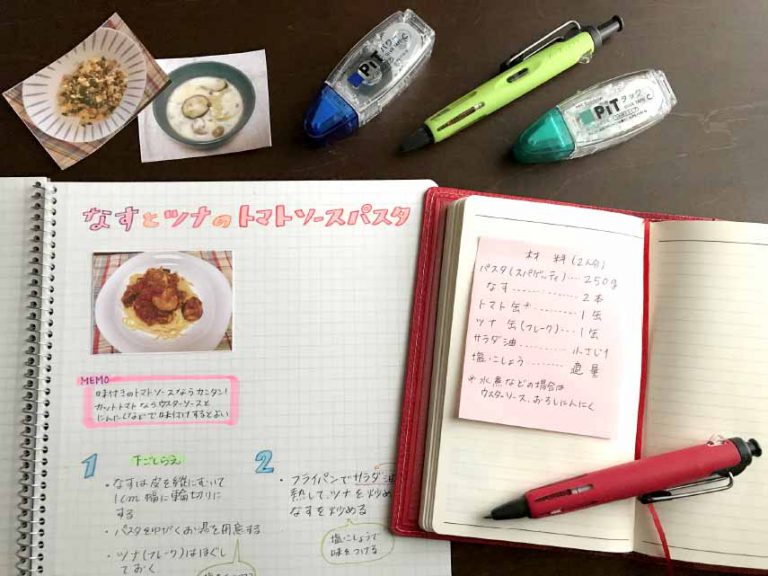 PiT パワー C
PiT タック C
なすとツナのトマトソースパスタ
MEMO
味付きのトマトソースならカンタン!
カットトマトならウスターソースと
にんにくなどで味付けするとよい
1 下ごしらえ
・なすは皮を縦にむいて
1cm幅に輪切りに
する
・パスタをゆがくお湯を用意する
・ツナ(フレーク)はほぐし
ておく
2
・フライパンでサラダ油
熱して、ツナを炒め
なすを炒める
塩こしょうで
味をつける
材料(2人分)
パスタ(スパゲッティ)…250g
なす…………2本
トマト缶*………1缶
ツナ缶(フレーク)…1缶
サラダ油………小さじ1
塩こしょう………適量
*水煮などの場合は
ウスターソース、おろしにんにく